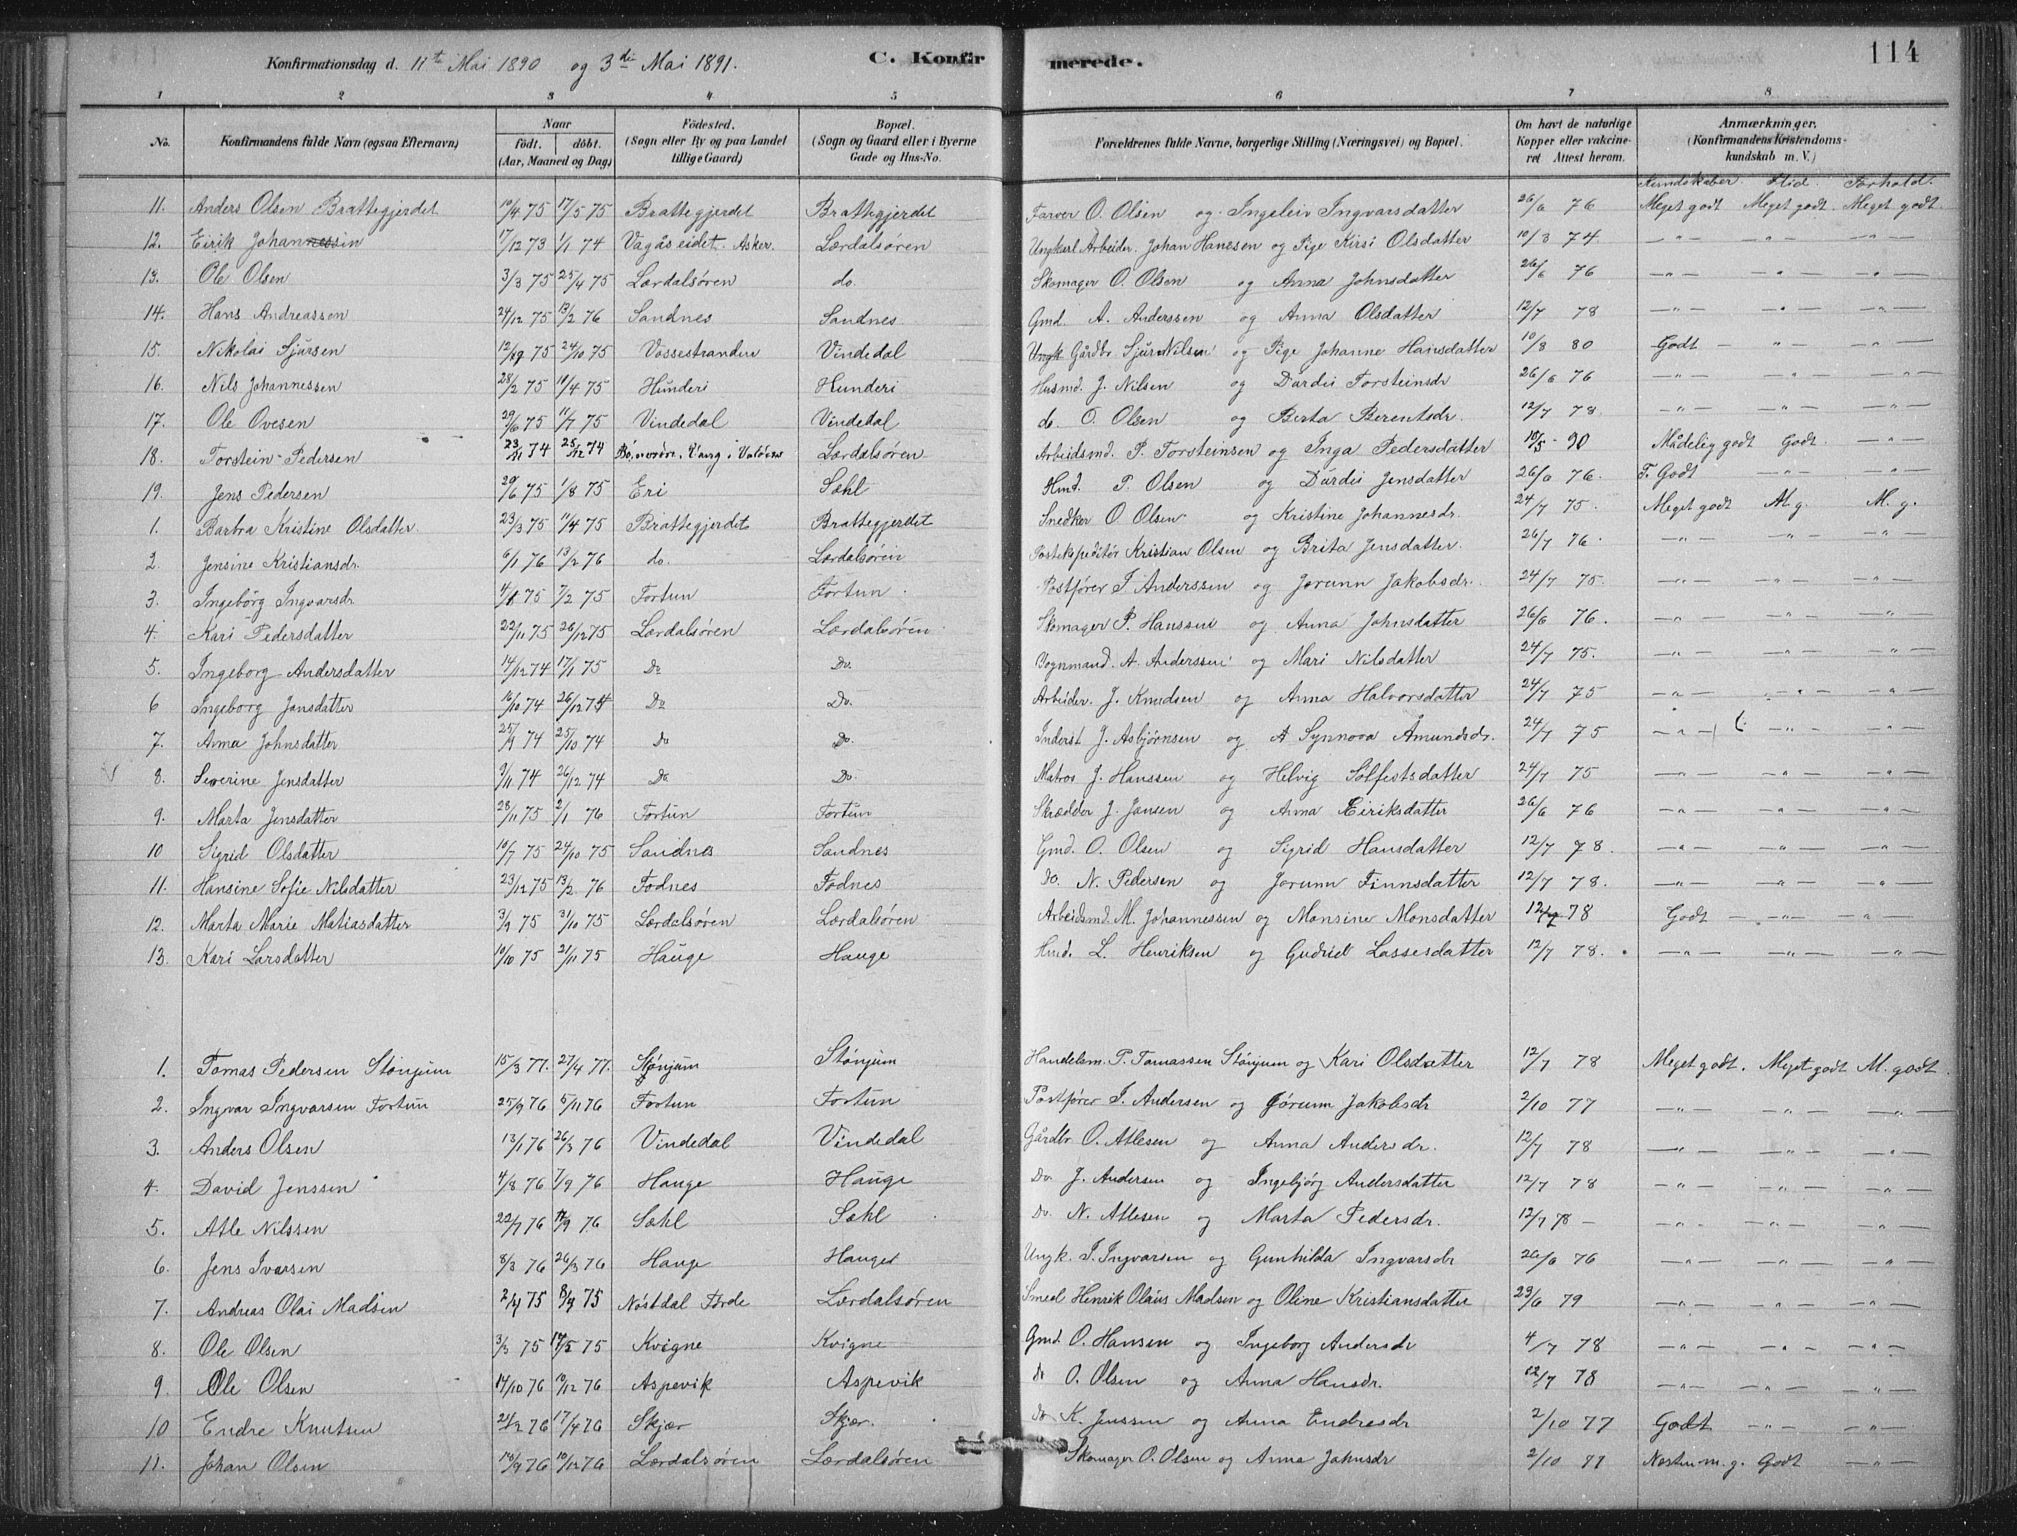 Konfirmationsdag d. 11te Mai 1890 og 3die Mai 1891. C. Konfirmerede. 114
1 2 3 4 5 6 7 8
No. Konfirmandens fulde Navn (ogsaa Efternavn) Naar født. døbt. (Aar, Maaned og Dag) Födested. (Sogn eller By og paa Landet tillige Gaard) Bopæl. (Sogn og Gaard eller i Byerne Gade og Hus-No. Forældrenes fulde Navne, borgerlige Stilling (Næringsvei) og Bopæl. Om havt de naturlige Kopper eller vakcineret Attest herom. Anmærkninger. (Konfirmandens Kristendomskundskab m. V.)
Kundskaber. Flid. Forhold.
11. Anders Olsen Brattegjerdet 10/4 75 17/5 75 Brattegjerdet Brattegjerdet Farver O. Olsen og Ingeleiv Ingvarsdatter 26/6 76 Meget godt Meget godt. Meget godt.
12. Eirik Johannessin 17/12 73 1/1 74 Vagåseidet. Asker. Lærdalsøren Ungkarl Arbeider. Johan Hansen og Pige Kirsi Olsdatter 10/8 74. — " — " — " —
13. Ole Olsen 3/3 75 25/4 75 Lærdalsøren do. Skomager O. Olsen og Anna Johnsdatter 26/6 76 — " — " — " —
14. Hans Andreassen 24/12 75 13/2 76 Sandnes Sandnes Gmd. A. Anderssen og Anna Olsdatter 12/7 78 — " — " — " —
15. Nikolai Sjursen 12/9 75 24/10 75 Vossestranden Vindedal Ungk. Gårdbr. Sjur Nilsen og Pige Johanne Hansdatter 10/8 80 Godt — " — " —
16. Nils Johannessen 28/2 75 10/4 75 Hunderi Hunderi Husmd. J. Nilsen og Dardei Torsteinsdr 26/6 76 — " — " — " —
17. Ole Ovesen 29/6 75 11/7 75 Vindedal Vindedal do. O. Olsen og Berta Berentsdr. 12/7 78. — " — " — " —
18. Torstein Pedersen 23/11 74 25/12 74 Vang i Valders Lærdalsøren Arbeidsmd. P. Torsteinsen og Inga Pedersdatter 10/5 90 Mådelig godt Godt. — " —
19. Jens Pedersen 29/6 75 1/8 75 Eri Sæhl Hmd. P. Olsen og Dardei Jensdatter 26/6 76. T. Godt — " — " —
1. Barbra Kristine Olsdatter. 23/3 75 11/4 75 Brattegjerdet Brattegjerdet Snedker O. Olsen og Kristine Johannesdr. 24/7 75. Meget godt M. g. M. g.
2. Jensine Kristiansdr. 6/1 76 13/2 76 do. Lærdalsøren Postekspeditør Kristian Olsen og Brita Jensdatter. 26/7 76. — " — " — " —
3. Ingebörg Ingvarsdr 4/1 75 7/2 75 Fortun Fortun. Postfører I. Anderssen og Jorunn Jakobsdr. 24/7 75. — " — " — " —
4. Kari Pedersdatter 22/11 75 26/12 75 Lærdalsøren Lærdalsøren Skomager P. Hanssen og Anna Johnsdatter 26/6 76. — " — " — " —
5. Ingeborg Andersdatter 14/12 74 17/1 75 Do Do. Vognmand. A. Anderssen og Mari Nilsdatter 24/7 75. — " — " — " —
6 Ingeborg Jonsdatter 16/10 74 26/12 74 Do Do. Arbeider. J. Knudsen og Anna Halvorsdatter 24/7 75 — " — " — " —
7. Anna Johnsdatter 25/9 74 25/10 74 Do Do. Inderst J. Asbjörnsen og A Synnova Amundsdr. 24/7 75 — " — " — " —
8. Severine Jensdatter 9/11 74 26/12 74 Do Do. Matros J. Hanssen og Helvig Sølfestsdatter 24/7 75 — " — " — " —
9. Marta Jensdatter 28/11 75 2/1 76 Fortun Fortun Skrædder J. Jansen og Anna Eiriksdatter 26/6 76 — " — " — " —
10 Sigrid Olsdatter 10/7 75 24/10 75 Sandnes Sandnes Gmd. O. Olsen og Sigrid Hansdatter 12/7 78. — " — " — " —
11. Hansine Sofie Nilsdatter 23/12 75 13/2 76 Fodnes Fodnes Do. N. Pedersen og Jorunn Finnsdatter 12/7 78. — " — " — " —
12. Marta Marie Matiasdatter 3/9 75 31/10 75 Lærdalsøren Lærdalsøren Arbeidsmd. M. Johannessen og Monsine Monsdatter 12/7 78 Godt — " — " —
13. Kari Larsdatter 10/10 75 21/11 75 Hauge Hauge Hmd. L. Henriksen og Gudrid Lassesdatter 12/7 78. — " — " — " —
1. Tomas Pedersen Stønjum 15/3 77. 27/4 77. Stønjum Stönjum Handelsm. P. Tomassen Stönjum og Kari Olsdatter 12/7 78 Meget godt. Meget godt M. godt.
2. Ingvar Ingvarsen Fortun 25/9 76 5/11 76 Fortun Fortun Postfører I. Andersen og Jórunn Jakobsdr 2/10 77 — " — " — " —
3. Anders Olsen 13/1 76 26/3 76 Vindedal Vindedal Gårdbr O. Atlesen og Anna Andersdr. 12/7 78 — " — " — " —
4. David Jenssen 4/8 76 7/9 76 Hauge Hauge Do. J. Andersen og Ingebjörg Andersdatter 12/7 78 — " — " — " —
5. Atle Nilssen 22/7 76 17/9 76 Sæhl Sæhl Do. N. Atlesen og Marta Pedersdr. 12/7 78 — " — " — " —
6. Jens Ivarsen 8/3 76 26/3 76 Hauge Hauge Ungk. I. Ingvarsen og Gunhilda Ingvarsdr 26/6 76 — " — " — " —
7. Andreas Olai Madsen 2/4 75 8/9 75 Nöstdal Førde Lærdalsøren Smed Henrik Olaus Madsen og Oline Kristiansdatter 23/6 79 — " — " — " —
8. Ole Olsen 3/3 75 17/5 75 Kvigne Kvigne Gmd. O. Hansen og Ingeborg Andersdr 4/7 78 — " — " — " —
9. Ole Olsen 14/10 76 10/12 76 Aspevik Aspevik do O. Olsen og Anna Hansdr. 12/7 78 — " — " — " —
10 Endre Knutsen 21/2 76 17/4 76 Skjær Skjær. do K. Jenssen og Anna Endresdr 2/10 77 Godt — " — " —
11. Johan Olsen 16/9 76 10/12 76 Lærdalsøren Lærdalsøren Skomager O. Olsen og Anna Johnsdr 2/10 77 Næsten m. g. Godt — " —